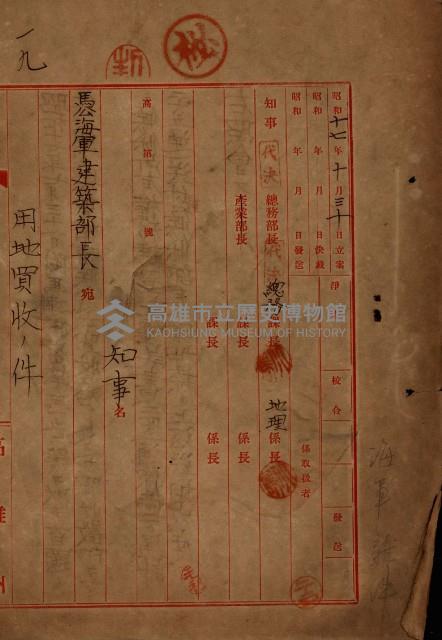 昭和十七年十月三十日立案
昭和 年 月 日決裁
昭和 年 月 日發送
淨
校合
發送
係取扱者
知事
代決
總務部長
代決
總務課長
地理係長
產業部長
課長
係長
課長
係長
高 第 號
知事名
海軍建築部長 宛
用地買收ノ件
一九
高雄州
海軍
高雄市立歷史博物館
KAOHSIUNG MUSEUM OF HISTORY